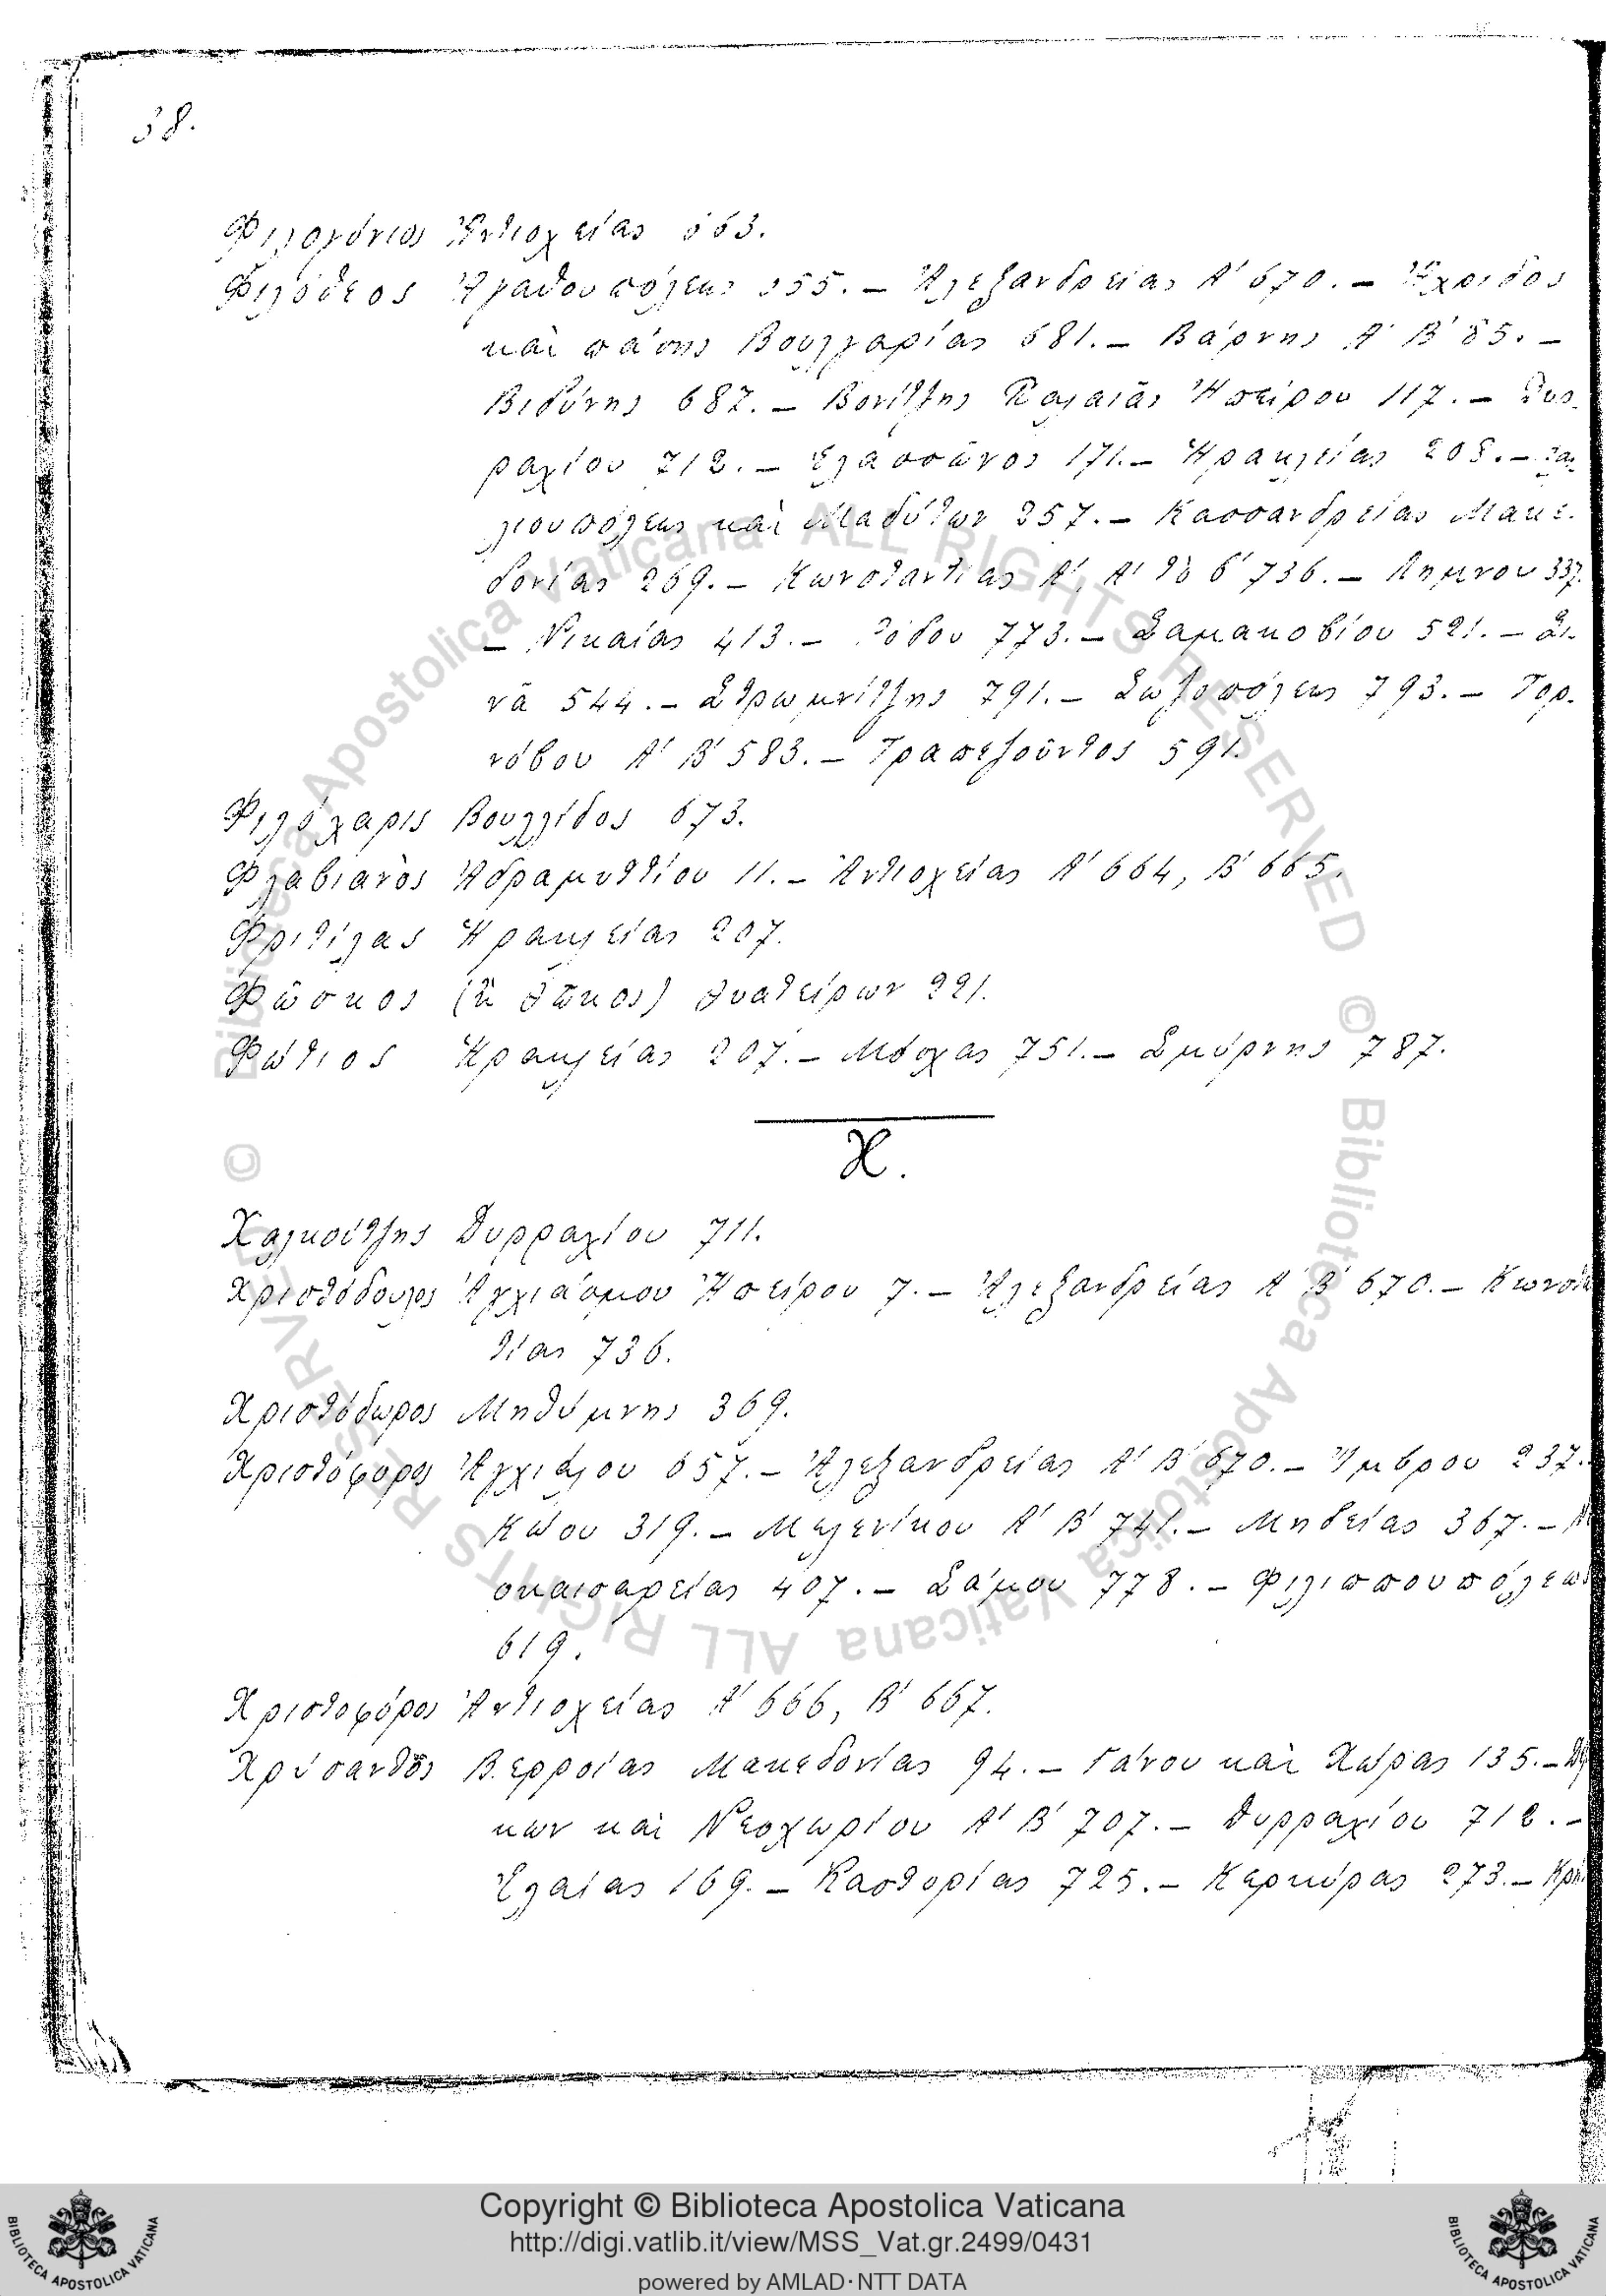 38.
Φιλογόνιος Ἀντιοχείας 663.
Φιλόθεος Ἀγαθουπόλεως 655. — Ἀλεξανδρείας Α' 670. — Ἀχρίδος
καὶ πάσης Βουλγαρίας 681. — Βάρνης Α' Β' 85. —
Βιδύνης 687. — Βονίτζης Παλαιᾶς Ἠπείρου 117. — Δυρ-
ραχίου 712. — Ἐλασσῶνος 171. — Ἡρακλείας 208. —
λιουπόλεως καὶ Μαδύτων 257. — Κασσανδρείας Μακε-
δονίας 269. — Κωνσταντίας Α', Α' τὸ β' 736. — Λήμνου 337.
— Νικαίας 413. — Ρόδου 773. — Σαμακοβίου 521. — Σι-
νᾶ 544. — Στρωμνίτζης 791. — Σωζοπόλεως 793. — Τορ-
νόβου Α' Β' 583. — Τραπεζοῦντος 591.
Φιλόχαρις Βουλλίδος 673.
Φλαβιανὸς Ἀδραμυττίου 11. — Ἀντιοχείας Α' 664, Β' 665.
Φριτίλας Ἡρακλείας 207.
Φῶσκος (ἢ Θῶκος) Θυατείρων 221.
Φώτιος Ἡρακλείας 207. — Μόσχας 751. — Σμύρνης 787.
Χ.
Χαλκούτζης Δυρραχίου 711.
Χριστόδουλος Ἀγχιάσμου Ἠπείρου 7. — Ἀλεξανδρείας Α' Β' 670. — Κωνσταν
τίας 736.
Χριστόδωρος Μηθύμνης 369.
Χριστόφορος Ἀγχιάλου 657. — Ἀλεξανδρείας Α' Β' 670. — Ἴμβρου 237.
Κώου 319. — Μελενίκου Α' Β' 741. — Μηδείας 367. —
οκαισαρείας 407. — Σάμου 778. — Φιλιππουπόλεως
619.
Χριστοφόρος Ἀντιοχείας Α' 666, Β' 667.
Χρύσανθος Βερροίας Μακεδονίας 94. — Γάνου καὶ Χώρας 135. —
κων καὶ Νεοχωρίου Α' Β' 707. — Δυρραχίου 712. —
Ἐλαίας 169. — Καστορίας 725. — Κερκύρας 273. — Κρή
Copyright © Biblioteca Apostolica Vaticana
http://digi.vatlib.it/view/MSS_Vat.gr.2499/0431
powered by AMLAD·NTT DATA